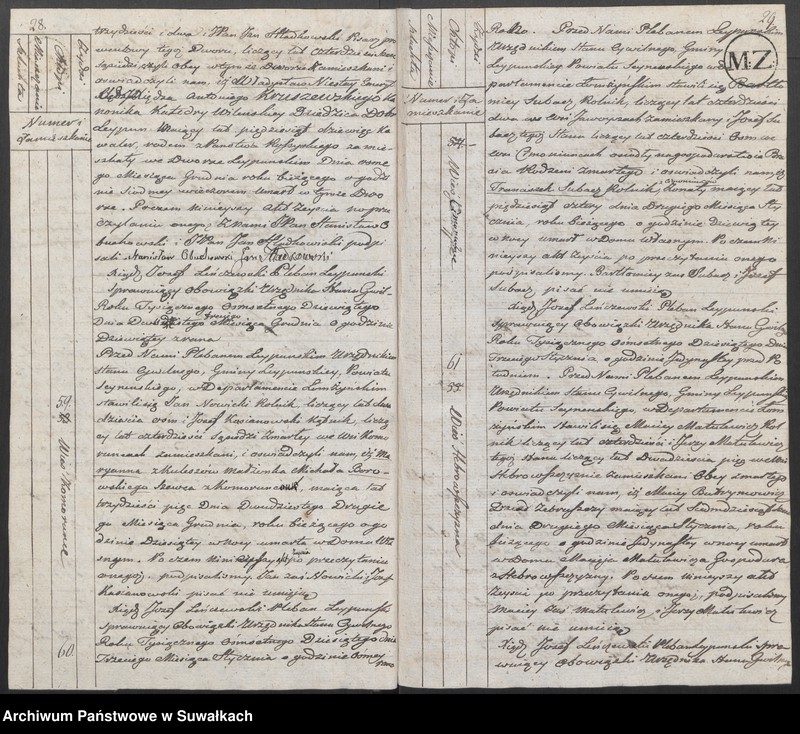 28.
Liczba
Osobny
Mieszkanie
Numer i
Zamieszkanie
59.
Wieś Komorunce
60.
trzydzieści i dwa i JPan Jan Kładkowski Pisarz pro-
wentowy tegoż Dworu, liczący lat czterdzieści
sąsiedzi czyli Obey w tymże Dworze zamieszkani i
oświadczyli nam, iż Władysław
Xiędza Antoniego Kruszewskiego Ka
nonika Katedry Wileńskiej Dziedzica Dobr
Leypun. Mający lat pięćdziesiąt dziewięć Ka
waler, rodem z Państwa Rossyjskiego zamie
szkały we Dworze Leypunskim Dnia osme
go Miesiąca Grudnia roku bieżącego o godzi
nie Siodmey wieczorem umarł w tymże Dwo
rze. Poczem ninieyszy Akt Zeyscia po prze
czytaniu onego, z Nami JPan Stanisław O
buchowski i JPan Jan Kładkowski podpi
sali Stanisław Obuchowski Jan
Xiądz Jozef Leńczewski Pleban Leypunski
Sprawuiący Obowiązki Urzędnika Stanu Cywil.
Roku Tysiącznego Osmsetnego Dziewiątego
Dnia Dwudziestego drugiego Miesiąca Grudnia o godzinie
Dziewiątey zrana
Przed Nami Plebanem Leypunskim Urzędnikiem
Stanu Cywilnego, Gminy Leypunskiey, Powiatu
Seynenskiego, w Departamencie Łomżynskim
stawili się Jan Nowicki Rolnik, liczący lat dwa
dzieścia osm i Jozef Kasianowski Rolnik, licz
cy lat czterdzieści Sąsiedzi zmarłey we Wsi Komo
runcach zamieszkani, i oświadczyli nam, iż Ma
ryanna z Kuleszow Małżonka Michała Boro-
wskiego Szewca z Komorunców, maiąca lat
trzydzieści pięć Dnia Dwudziestego Drugie
go Miesiąca Grudnia, roku bieżącego o go
dzinie Dziesiątey w nocy umarła w Domu Wła
snym. Po czem Akt Zeyscia po przeczytaniu
onegoż podpisalismy. Jan zaś Nowicki i Jozef
Kasianowski pisać nie umieią
Xiądz Jozef Leńczewski Pleban Leypunsk
Sprawuiący Obowiązki Urzędnika Stanu Cywilnego
Roku Tysiącznego Osmsetnego Dziesiątego dnia
Trzeciego Miesiąca Stycznia o godzinie Osmey zrana
29.
M:Z:
Liczba
Osobny
Mieszkanie
Numer i Za
mieszkanie
61
Przed Nami Plebanem Leypunskim
Urzędnikiem Stanu Cywilnego Gminy
Leypunskiey Powiatu Seynenskiego w De
partamencie Łomżynskim stawili się Bartło
miey Subacz Rolnik, liczący lat czterdzieści
dwa we Wsi zamieszkany i Jozef Su
bacz tegoż Stanu liczący lat czterdzieści Osm we
Wsi osiadły na gospodarstwie Bra
cia Rodzeni zmarłego i oświadczyli nam, iż
Franciszek Subacz Rolnik, Zonaty maiący lat
pięćdziesiąt cztery dnia Drugiego Miesiąca Sty
cznia, roku bieżącego o godzinie Dziewiątey
w nocy umarł w Domu własnym. Po czem Ni
nieyszy Akt Zeyscia po przeczytaniu onego
podpisalismy. Bartłomiey zaś Subacz i Jozef
Subacz pisać nie umieią
Xiądz Jozef Leńczewski Pleban Leypunski
Sprawuiący Obowiązki Urzędnika Stanu Cywilne
Roku Tysiącznego Osmsetnego Dziesiątego Dnia
Trzeciego Stycznia o godzinie Jedynastey, przed Po
łudniem. Przed Nami Plebanem Leypunskim
Urzędnikiem Stanu Cywilnego, Gminy Leypunskiey
Powiatu Seynenskiego, w Departamencie Łom-
żynskim Stawili się Maciey Matulewicz Rol
nik liczący lat czterdzieści i Jerzy Matulewicz
tegoż Stanu liczący lat Dwadzieścia pięć we Wsi
zamieszkani Obey zmarłego
i oświadczyli nam, iż Maciey Butrymowicz
maiący lat Siedmdziesiąt
dnia Drugiego Miesiąca Stycznia, roku
bieżącego o godzinie Jedynastey w nocy umarł
w Domu Macieja Matulewicza Gospodarza
Poczem ninieyszy Akt
Zeyscia po przeczytaniu onegoż, podpisalismy
Maciey zaś Matulewicz i Jerzy Matulewicz
pisać nie umieią
Xiądz Jozef Leńczewski Pleban Leypunski Spra
wuiący Obowiązki Urzędnika Stanu Cywilnego
Archiwum Państwowe w Suwałkach